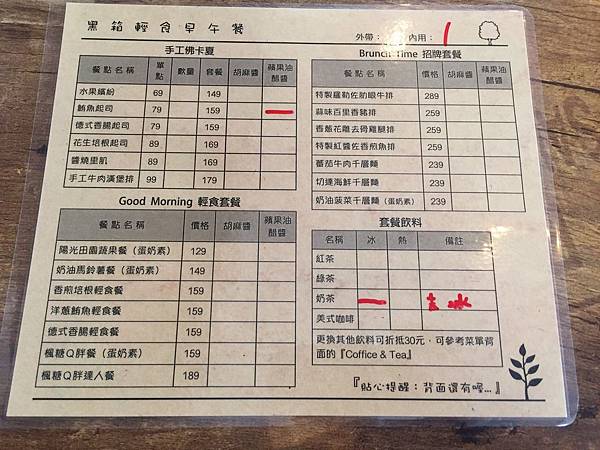 黑箱輕食早午餐
外帶： 內用：1
手工佛卡夏
餐點名稱 單點 數量 套餐 胡麻醬 蘋果油醋醬
水果繽紛 69 149
鮪魚起司 79 159
德式香腸起司 79 159
花生培根起司 89 169
醬燒里肌 89 169
手工牛肉漢堡排 99 179
Good Morning 輕食套餐
餐點名稱 價格 胡麻醬 蘋果油醋醬
陽光田園蔬果餐（蛋奶素） 129
奶油馬鈴薯餐（蛋奶素） 149
香煎培根輕食餐 159
洋蔥鮪魚輕食餐 159
德式香腸輕食餐 159
楓糖Q胖餐（蛋奶素） 159
楓糖Q胖達人餐 189
Brunch Time 招牌套餐
餐點名稱 價格 胡麻醬 蘋果油醋醬
特製羅勒佐肋眼牛排 289
蒜味百里香豬排 259
香蔥花雕去骨雞腿排 259
特製紅醬佐香煎魚排 259
蕃茄牛肉千層麵 239
切達海鮮千層麵 239
奶油菠菜千層麵（蛋奶素） 239
套餐飲料
名稱 冰 熱 備註
紅茶
綠茶
奶茶 去冰
美式咖啡
更換其他飲料可折抵30元，可參考菜單背
面的『Coffice & Tea』
『貼心提醒：背面還有喔...』